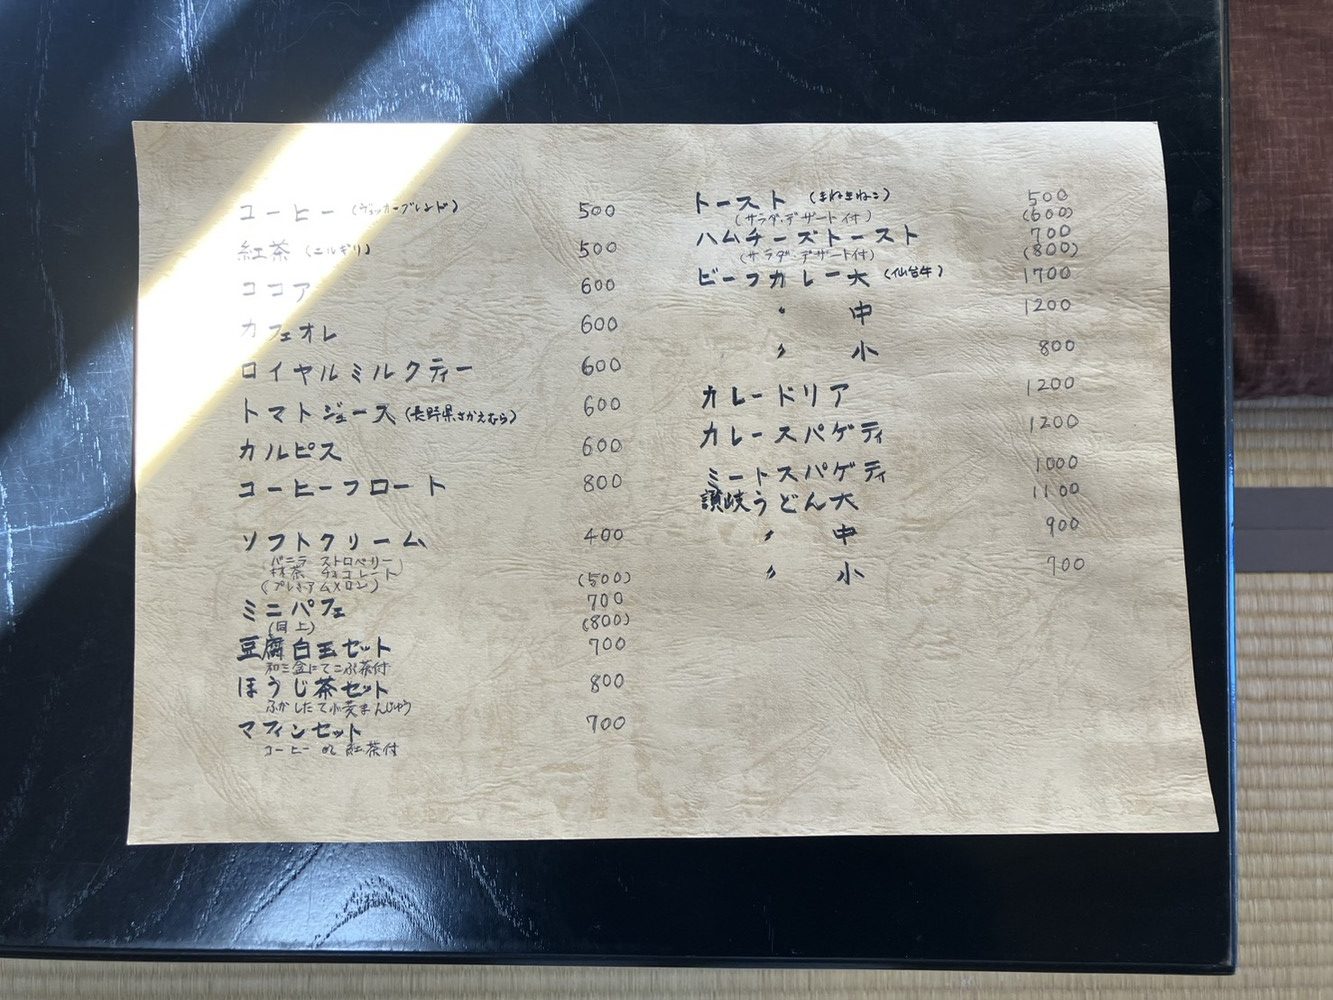 コーヒー (ヴィッカーブレンド) 500
紅茶 (ニルギリ) 500
ココア 600
カフェオレ 600
ロイヤルミルクティー 600
トマトジュース (長野県さかえむら) 600
カルピス 600
コーヒーフロート 800
ソフトクリーム 400
(バニラ ストロベリー
抹茶 チョコレート)
(プレミアムメロン) (500)
ミニパフェ 700
(同上) (800)
豆腐白玉セット 700
和三盆にてこぶ茶付
ほうじ茶セット 800
ふかしたて小麦まんじゅう
マフィンセット 700
コーヒー or 紅茶付
トースト (まねきねこ) 500
(サラダ・デザート付) (600)
ハムチーズトースト 700
(サラダ・デザート付) (800)
ビーフカレー大 (仙台牛) 1700
〃 中 1200
〃 小 800
カレードリア 1200
カレースパゲティ 1200
ミートスパゲティ 1000
讃岐うどん大 1100
〃 中 900
〃 小 700